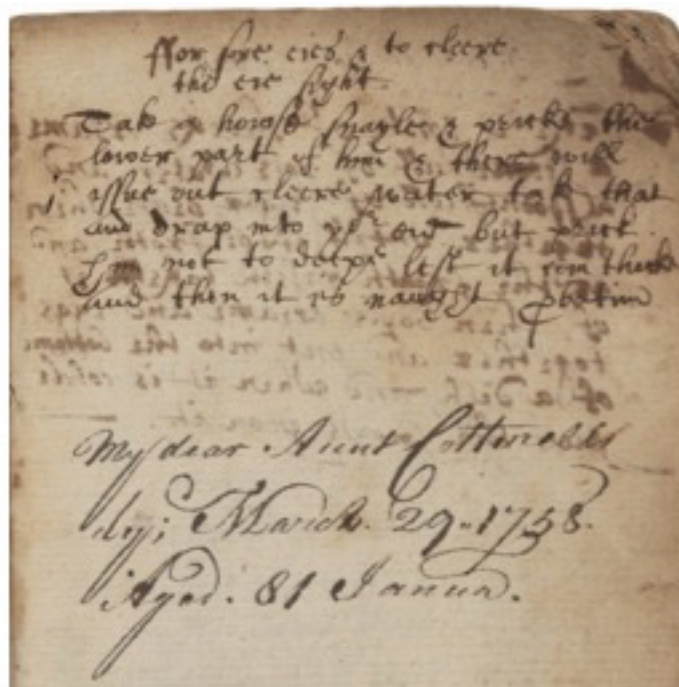 ffor sore eies & to cleere
the eie sight
Take a howse snayle & pricke the
lower part of him & there will
issue out cleere water take that
and drop into yor eie but prick
him not to deepe lest it com thicke
and then it is naught
My dear Aunt Cottrells
dy; March. 29. 1758.
Aged. 81 Janua.